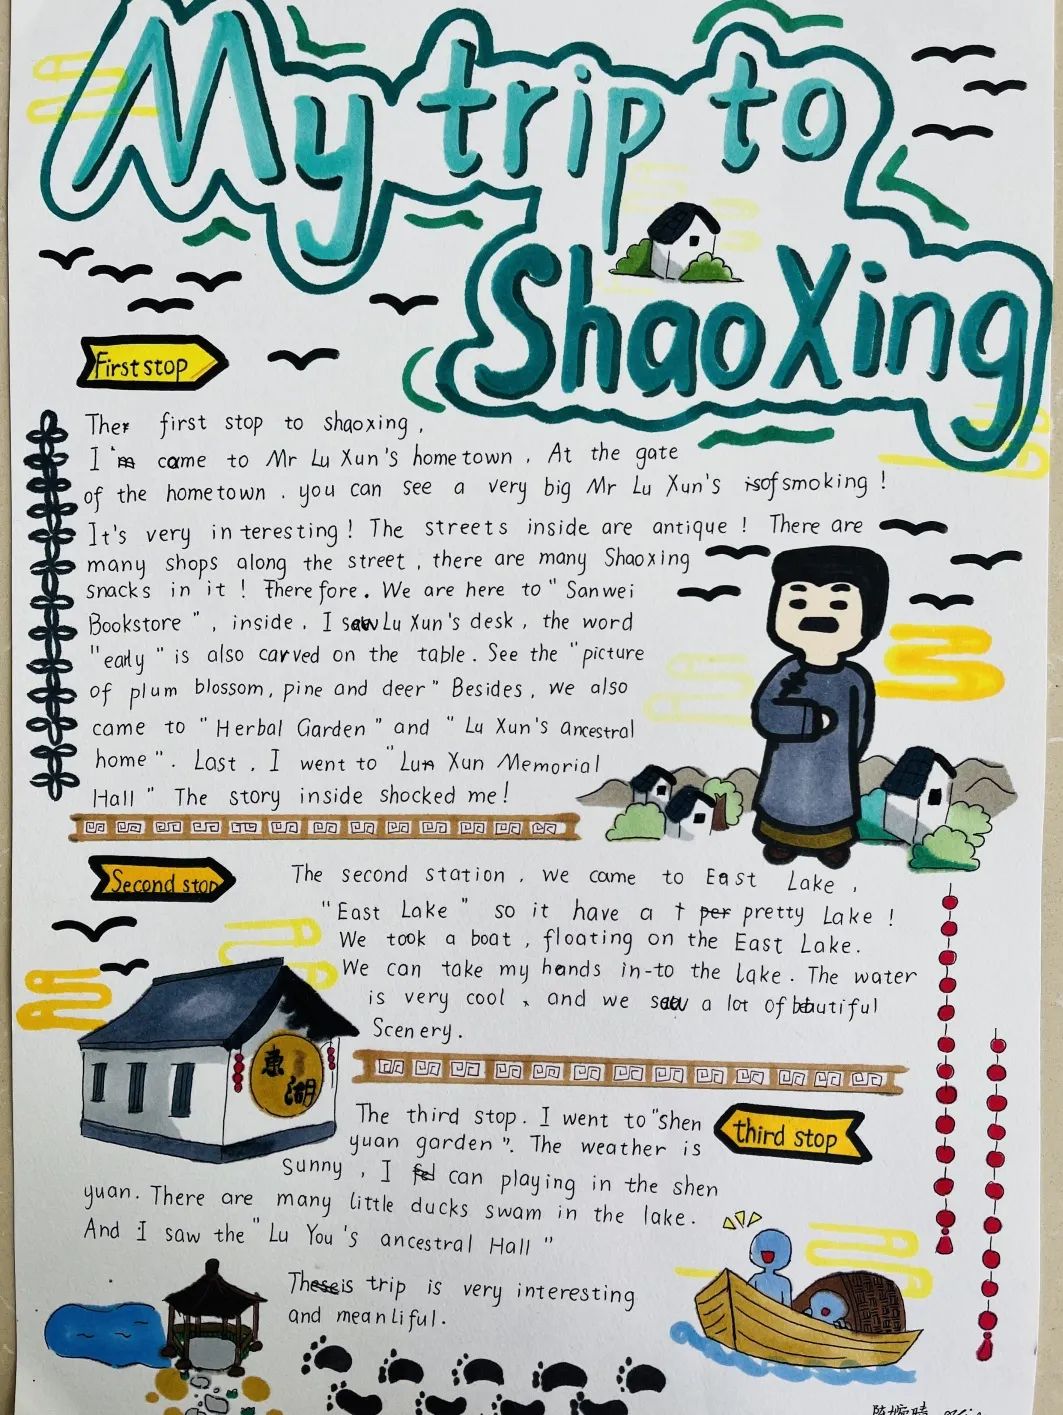 My trip to
ShaoXing
First stop
The first stop to shaoxing,
I came to Mr Lu Xun's hometown. At the gate
of the hometown. you can see a very big Mr Lu Xun's of smoking!
It's very in teresting! The streets inside are antique! There are
many shops along the street, there are many Shaoxing
snacks in it! Therefore. We are here to "Sanwei
Bookstore", inside. I saw Lu Xun's desk, the word
"early" is also carved on the table. See the "picture
of plum blossom, pine and deer" Besides, we also
came to "Herbal Garden" and "Lu Xun's ancestral
home". Last. I went to "Lu Xun Memorial
Hall" The story inside shocked me!
Second stop
The second station, we came to East Lake,
"East Lake" so it have a pretty Lake!
We took a boat, floating on the East Lake.
We can take my hands in-to the lake. The water
is very cool, and we saw a lot of beautiful
Scenery.
東湖
third stop
The third stop. I went to "shen
yuan garden". The weather is
Sunny, I can playing in the shen
yuan. There are many little ducks swam in the lake.
And I saw the "Lu You's ancestral Hall"
This trip is very interesting
and meanliful.